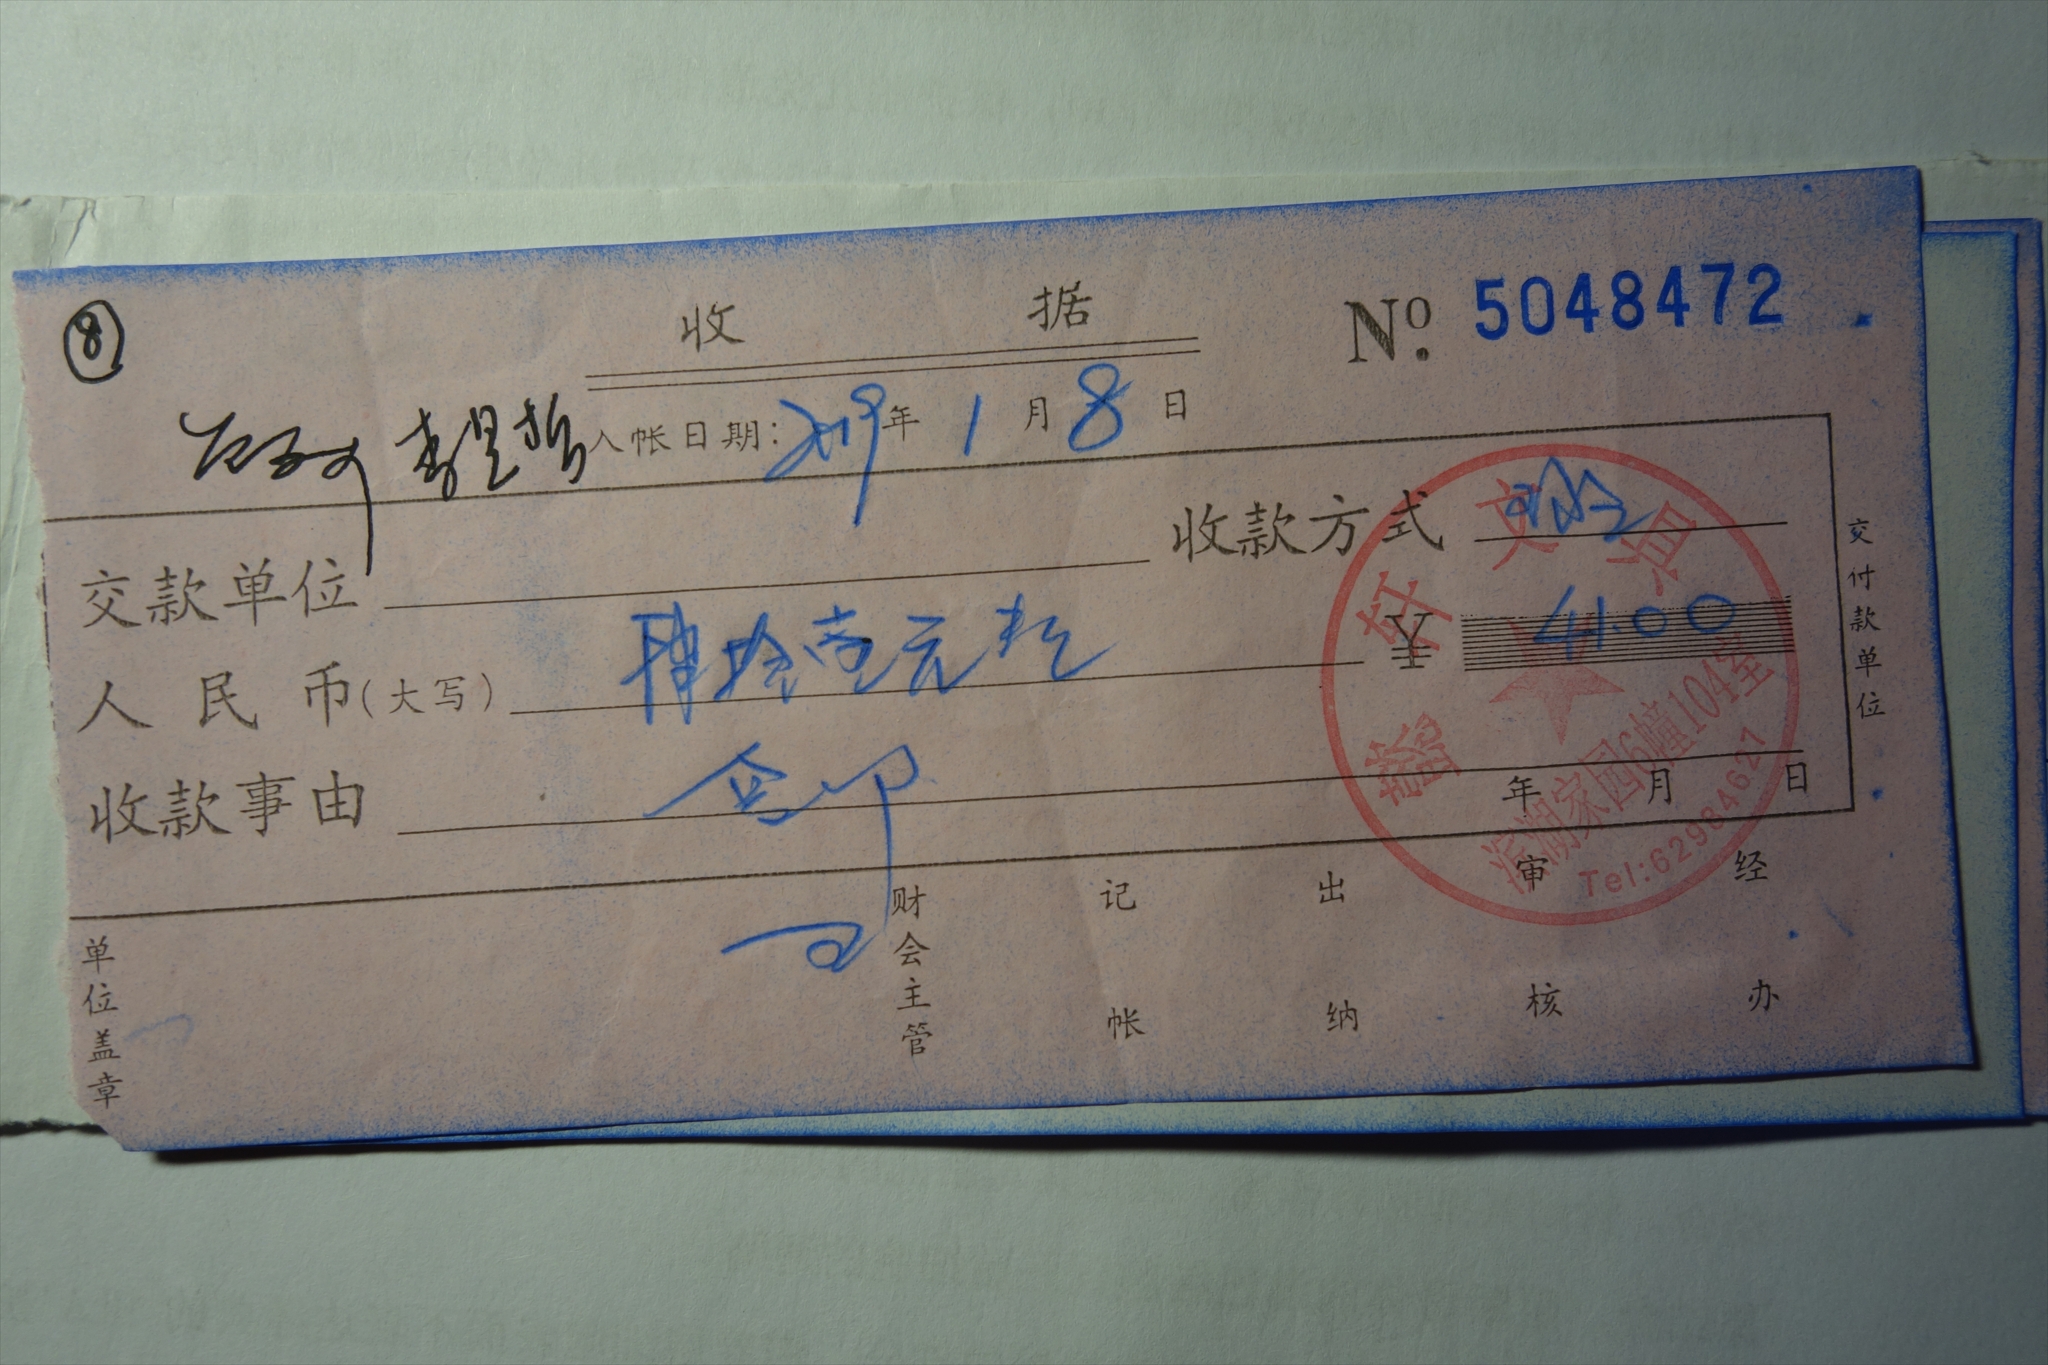 ⑧
收 据
№ 5048472
入帐日期: 2019年 1 月 8 日
交款单位
收款方式 现金
人民币(大写) 肆拾壹元整 ¥ 41.00
收款事由
年 月 日
交付款单位
单位盖章
财会主管
记帐
出纳
审核
经办
馨轩文具
滨湖家园6幢104室
Tel:62984627